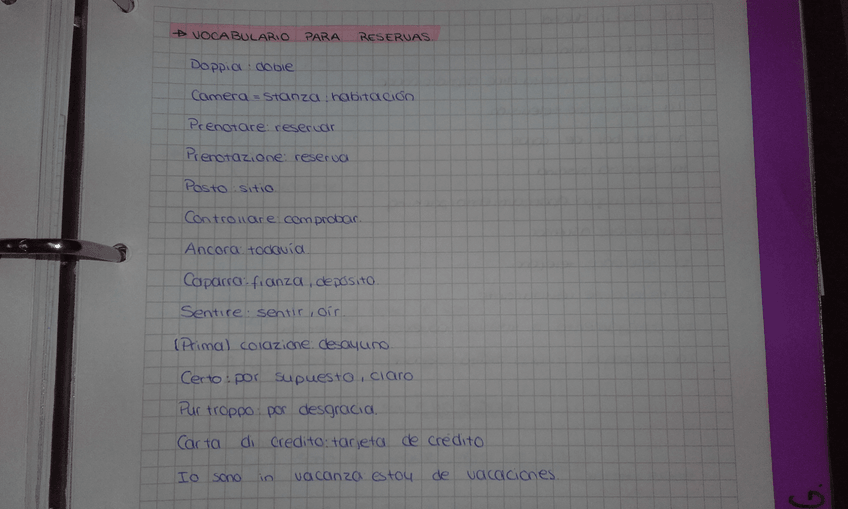 → VOCABULARIO PARA RESERVAS.
Doppia: doble
Camera = stanza: habitación
Prenotare: reservar
Prenotazione: reserva
Posto: sitio
Controllare: comprobar.
Ancora: todavía.
Caparra: fianza, depósito.
Sentire: sentir, oír
(Prima) colazione: desayuno
Certo: por supuesto, claro
Purtroppo: por desgracia.
Carta di credito: tarjeta de crédito
Io sono in vacanza: estoy de vacaciones.
G.